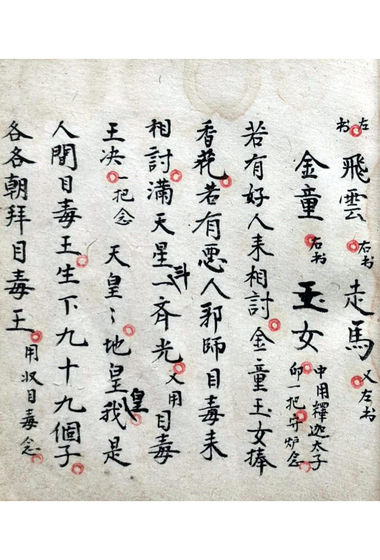 左书飛雲右书走馬又左书
金童右书玉女中用釋迦太子印一把守炉念
若有好人来相討金童玉女捧
香花若有恶人邪師目毒来
相討滿天星斗一齐光又用目毒
王决一把念天皇〻地皇皇我是
人間目毒王生下九十九個子
各各朝拜目毒王用収目毒念